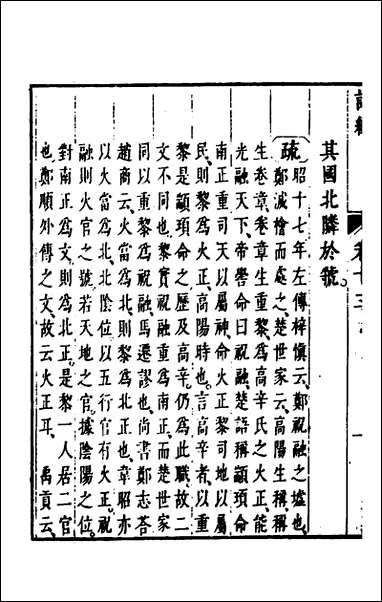 卷十三
其國北隣於虢。
疏 昭十七年左傳梓慎云、鄭祝融之墟也、
鄭滅檜而處之、楚世家云、高陽生稱、稱
生卷章、卷章生重黎、爲高辛氏之火正、能
光融天下、帝嚳命曰祝融、楚語稱顓頊命
南正重司天以屬神、命火正黎司地以屬
民、則黎爲火正、高陽時也、言高辛者、以重
黎是顓頊命之歷及高辛、仍爲此職、故二
文不同也、黎實祝融、重爲南正、而楚世家
同以重黎爲祝融、馬遷謬也、尚書鄭志荅
趙商云、火當爲北、則黎爲北正也、韋昭亦
以火當爲北、北陰位、以五行官有火正、祝
融則火官之號、若天地之官、據陰陽之位、
對南正爲文、則爲北正、是黎一人居二官
也、鄭順外傳之文、故云火正耳、　禹貢云、